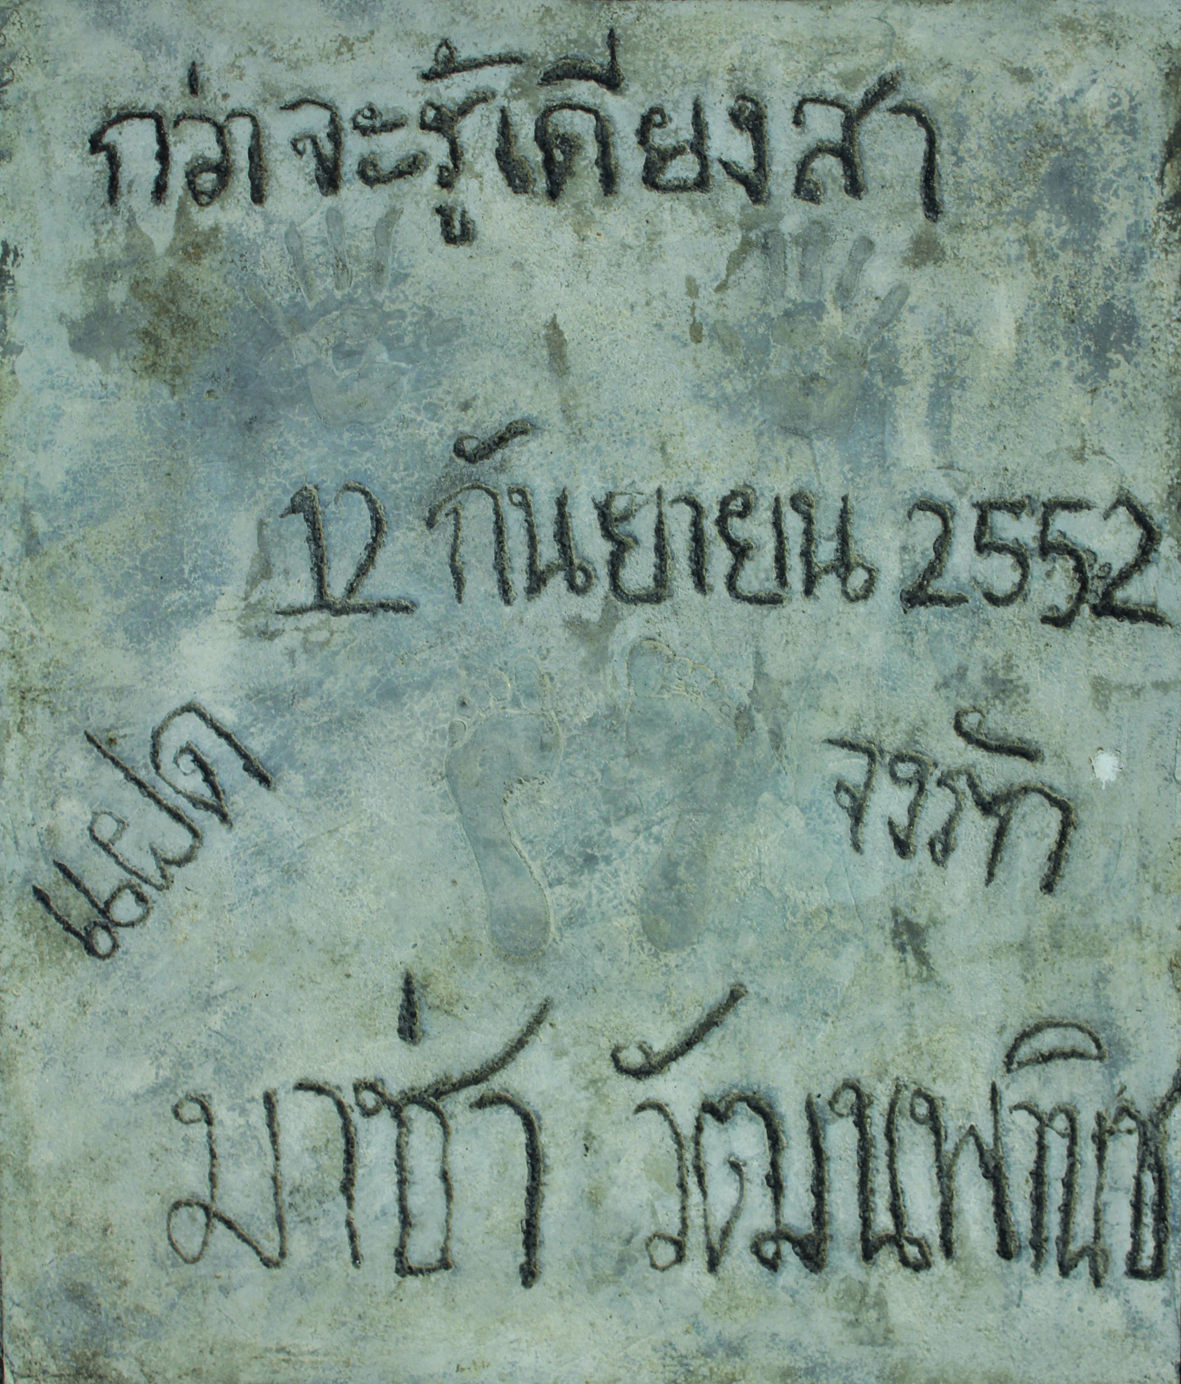 กว่าจะรู้เดียงสา
12 กันยายน 2552
แปด
จงรัก
มาช่า วัฒนพานิช